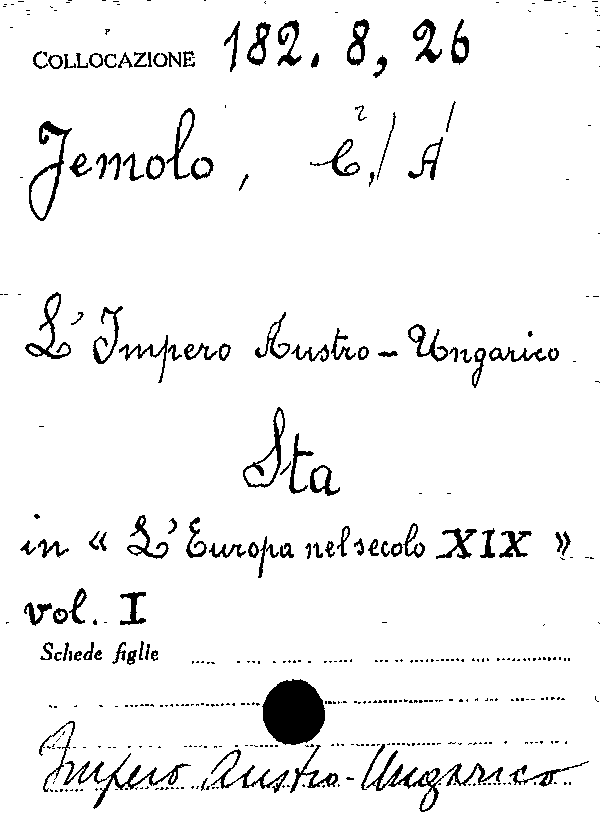 COLLOCAZIONE 182. 8, 26
Jemolo, C./ A
2 /
L'Impero Austro-Ungarico
Sta
in « L'Europa nel secolo XIX »
vol. I
Schede figlie
Impero Austro-Ungarico